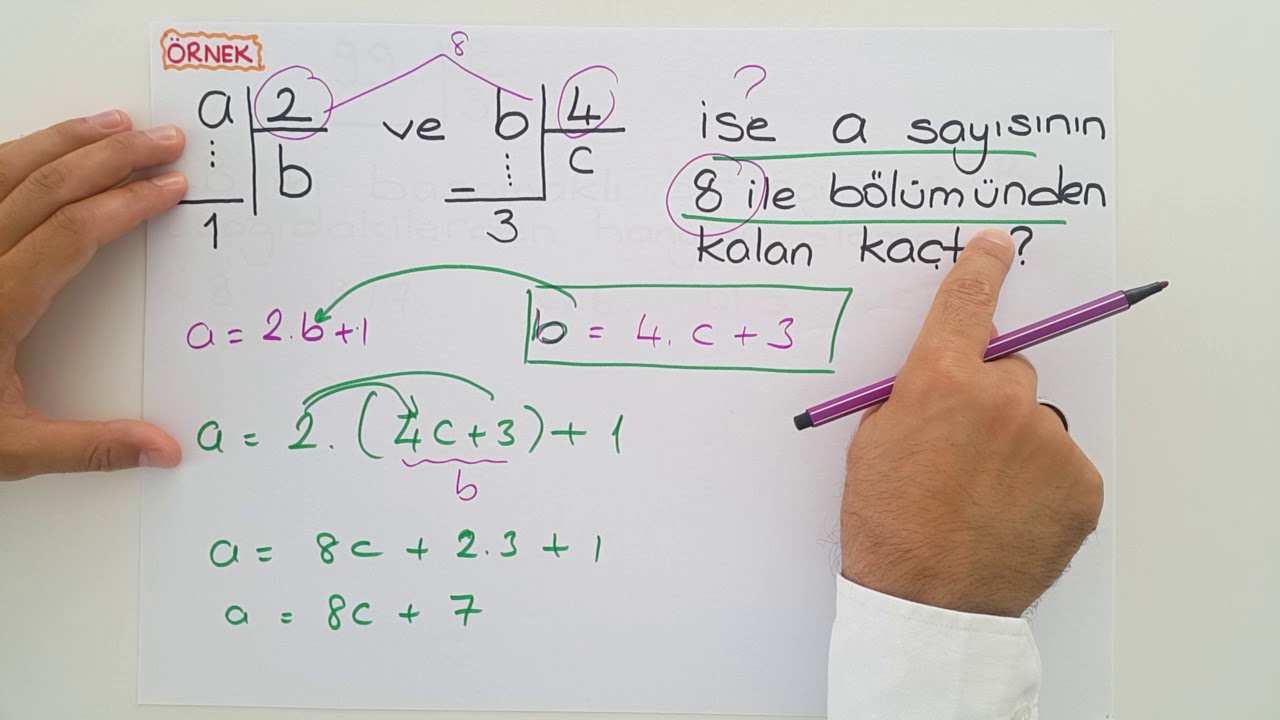 ÖRNEK
8
a 2 ve b 4
b c
1 3
?
ise a sayısının
8 ile bölümünden
kalan kaçt ?
a = 2.b+1
b = 4. c + 3
a = 2. (4c+3) + 1
b
a = 8c + 2.3 + 1
a = 8c + 7